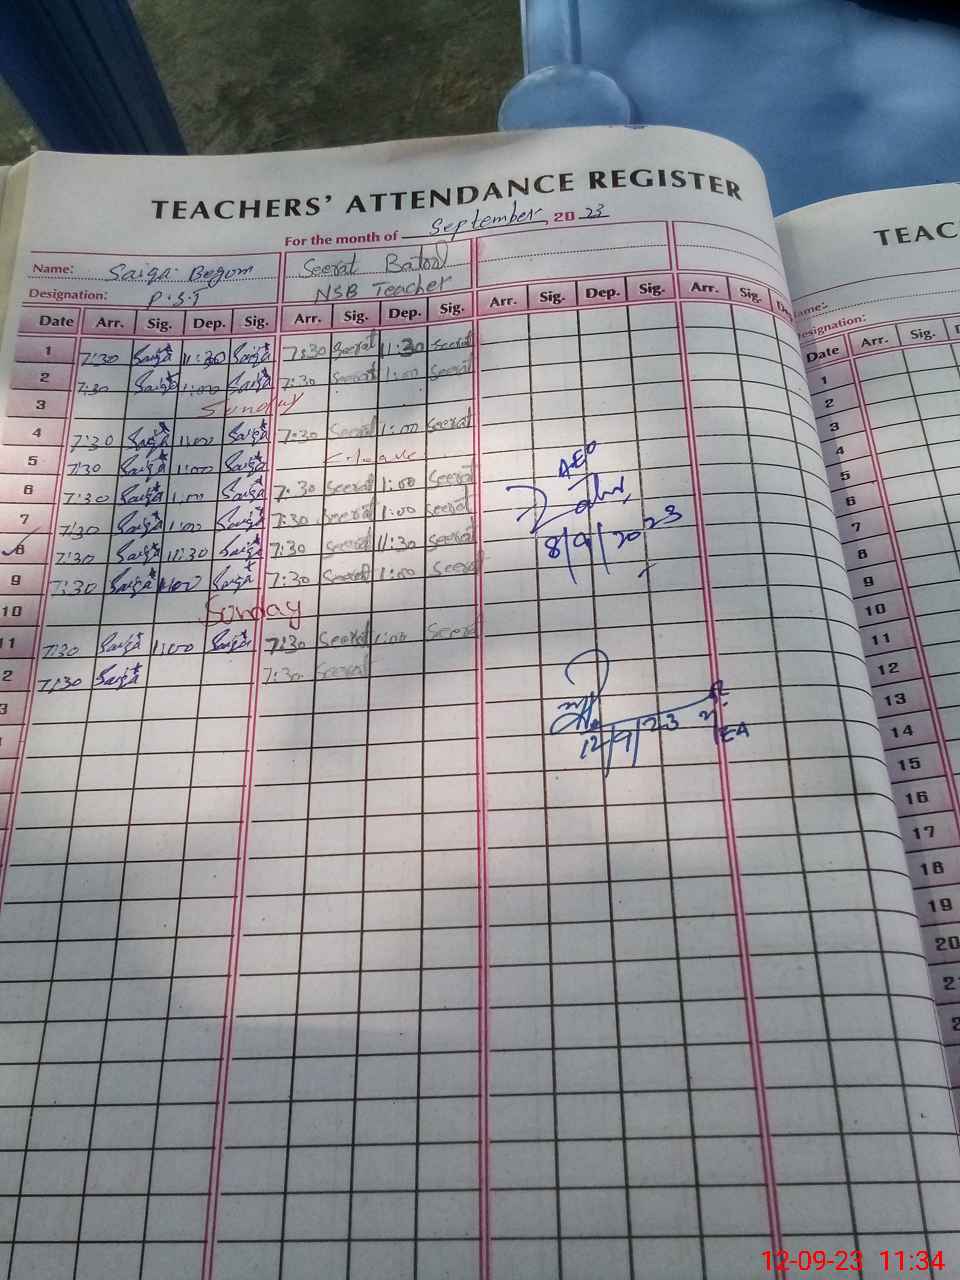 TEACHERS' ATTENDANCE REGISTER
For the month of September, 20 23
Name: Saiqa Begom Seerat Batool
Designation: P.S.T NSB Teacher
Date Arr. Sig. Dep. Sig. Arr. Sig. Dep. Sig. Arr. Sig. Dep. Sig. Arr. Sig.
1 7:30 Saiqa 11:30 Saiqa 7:30 Seerat 11:30 Seerat
2 7:30 Saiqa 1:00 Saiqa 7:30 Seerat 1:00 Seerat
3 Sunday
4 7:30 Saiqa 1:00 Saiqa 7:30 Seerat 1:00 Seerat
5 7:30 Saiqa 1:00 Saiqa
6 7:30 Saiqa 1:00 Saiqa 7:30 Seerat 1:00 Seerat
7 7:30 Saiqa 1:00 Saiqa 7:30 Seerat 1:00 Seerat
8 7:30 Saiqa 11:30 Saiqa 7:30 Seerat 11:30 Seerat
9 7:30 Saiqa 1:00 Saiqa 7:30 Seerat 1:00 Seerat
10 Sunday
11 7:30 Saiqa 1:00 Saiqa 7:30 Seerat 1:00 Seerat
2 7:30 Saiqa 7:30 Seerat
3
AEO
8/9/2023
12/9/23
TEAC
Name:
Designation:
Date Arr. Sig.
1
2
3
4
5
6
7
8
9
10
11
12
13
14
15
16
17
18
19
20
2
2
12-09-23 11:34